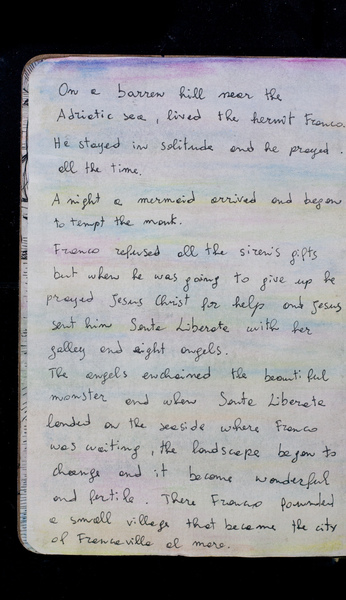 On a barren hill near the
Adriatic sea, lived the hermit Franco.
He stayed in solitude and he prayed
all the time.
A night a mermaid arrived and began
to tempt the monk.
Franco refused all the siren's gifts
but when he was going to give up he
prayed Jesus Christ for help and Jesus
sent him Santa Liberata with her
galley and eight angels.
The angels enchained the beautiful
monster and when Santa Liberata
landed on the seaside where Franco
was waiting, the landscape began to
change and it became wonderful
and fertile. There Franco founded
a small village that became the city
of Francavilla al mare.